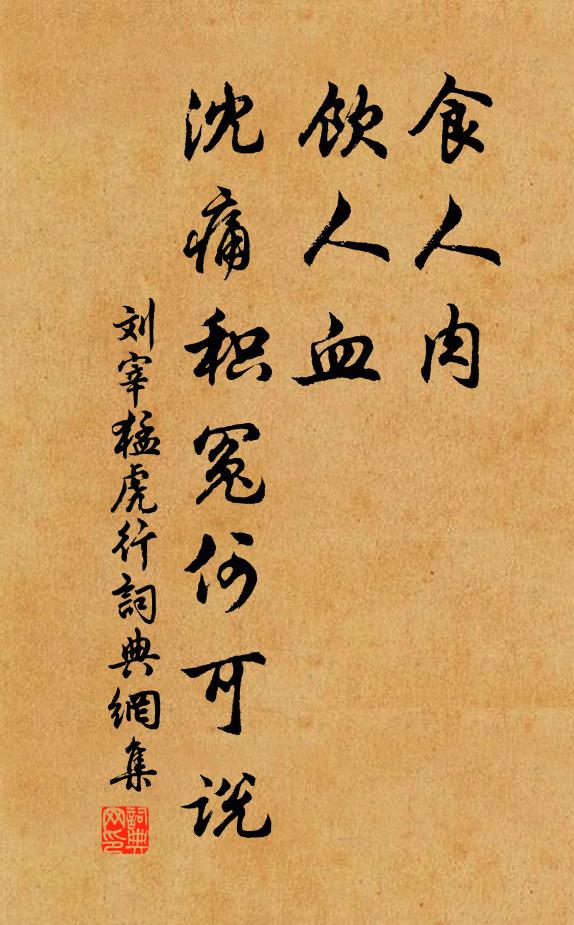 食人肉
飲人血
沈痛积冤何可説
刘宰猛虎行詞典網集
詞典网印